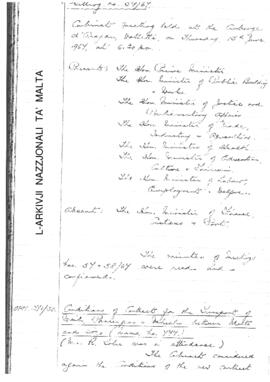 Meeting No. 59/67
Cabinet meeting held at the Auberge
d'Aragon, Valletta, on Thursday, 15th June
1967, at 6.30 p.m.
Present: The Hon. Prime Minister
The Hon. Minister of Public Building
& Works
The Hon. Minister of Justice and
Parliamentary Affairs
The Hon. Minister of Trade,
Industry & Agriculture
The Hon. Minister of Health
The Hon. Minister of Education,
Culture & Tourism
The Hon. Minister of Labour,
Employment & Welfare
Absent: The Hon. Minister of Finance,
Customs & Port
The minutes of meetings
Nos 57 & 58/67 were read and
confirmed.
Conditions of Contract for the Transport of
between Malta
and Gozo (Memo No. 744)
(Mr. R. was in attendance)
The Cabinet considered
again the conditions of the new contract
L-ARKIVJI NAZZJONALI TA' MALTA